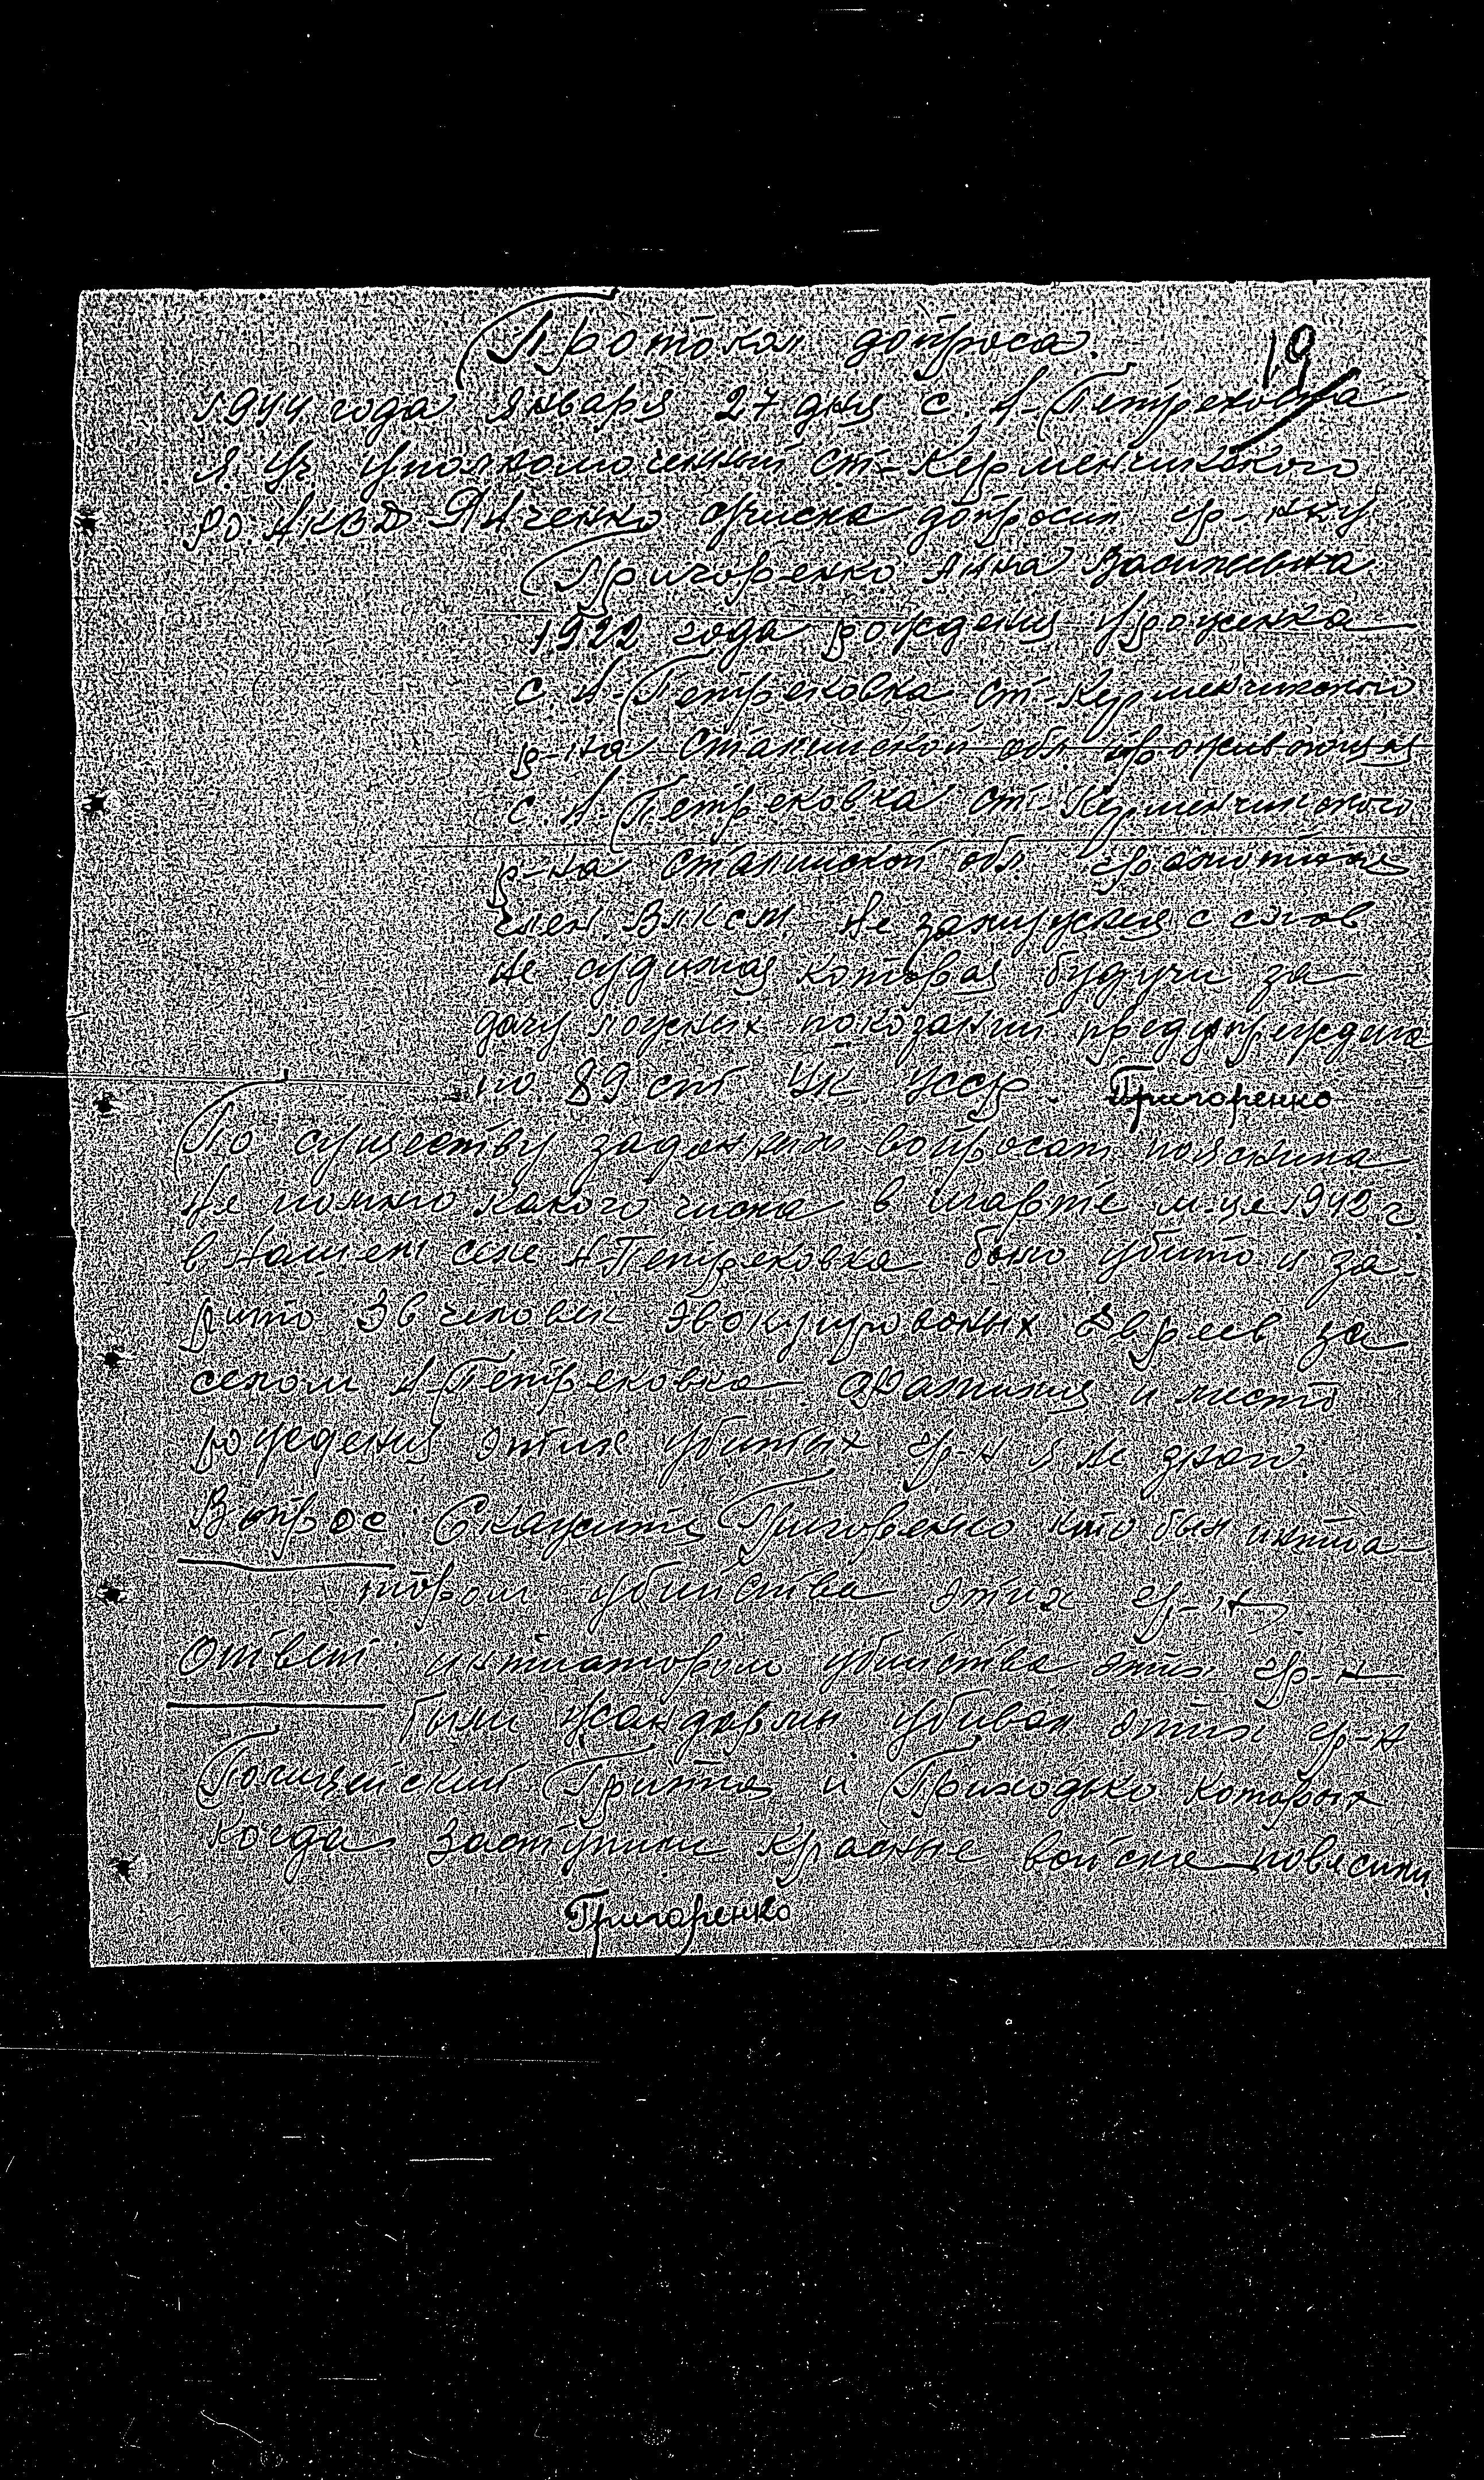 Протокол допроса.
19
1944 года Января 27 дня с. Н-Петрековка
Я. Уч. Уполномоченный Ст-Керменчикского
РО НКВД допросил гр-нку
Григоренко Анна Васильевна
1922 года рождения Уроженка
с. Н-Петрековка Ст-Керменчикского
р-на Сталинской обл. проживающая
с. Н-Петрековка Ст-Керменчикского
р-на Сталинской обл. грамотная
член. ВЛКСМ. Не замужняя с слов
не судимая которая будучи за
дачу ложных показаний предупреждена
по 89 ст УК УССР. Григоренко
По существу заданным вопросам пояснила
Не помню какого числа в марте м-це 1942 г
в нашем селе Н-Петрековка было убито и за
рито человек эвокуированых Евреев за
селом Н-Петрековка. Фамилия и место
рождения этих убитых гр-н я не знаю.
Вопрос: Скажите Григоренко кто был
убийства этих гр-н
Ответ: убийства этих гр-н
были жандармы убивал этих гр-н
Полицейский и Приходько которых
когда заступили красные войска повесили
Григоренко